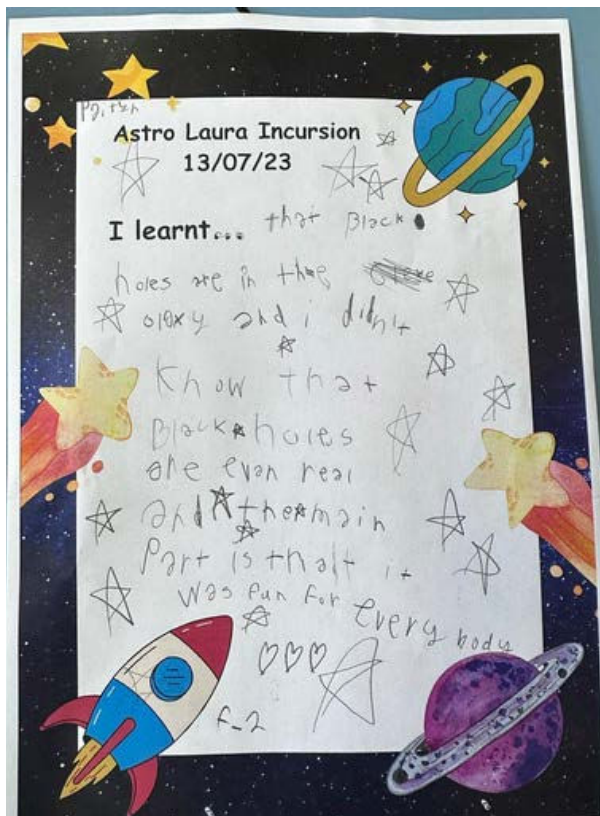 Astro Laura Incursion
13/07/23
I learnt... that Black
holes are in the
olaxy and i didn't
Know that
Black holes
are evan real
and the main
Part is that it
was fun for everybody
F-2